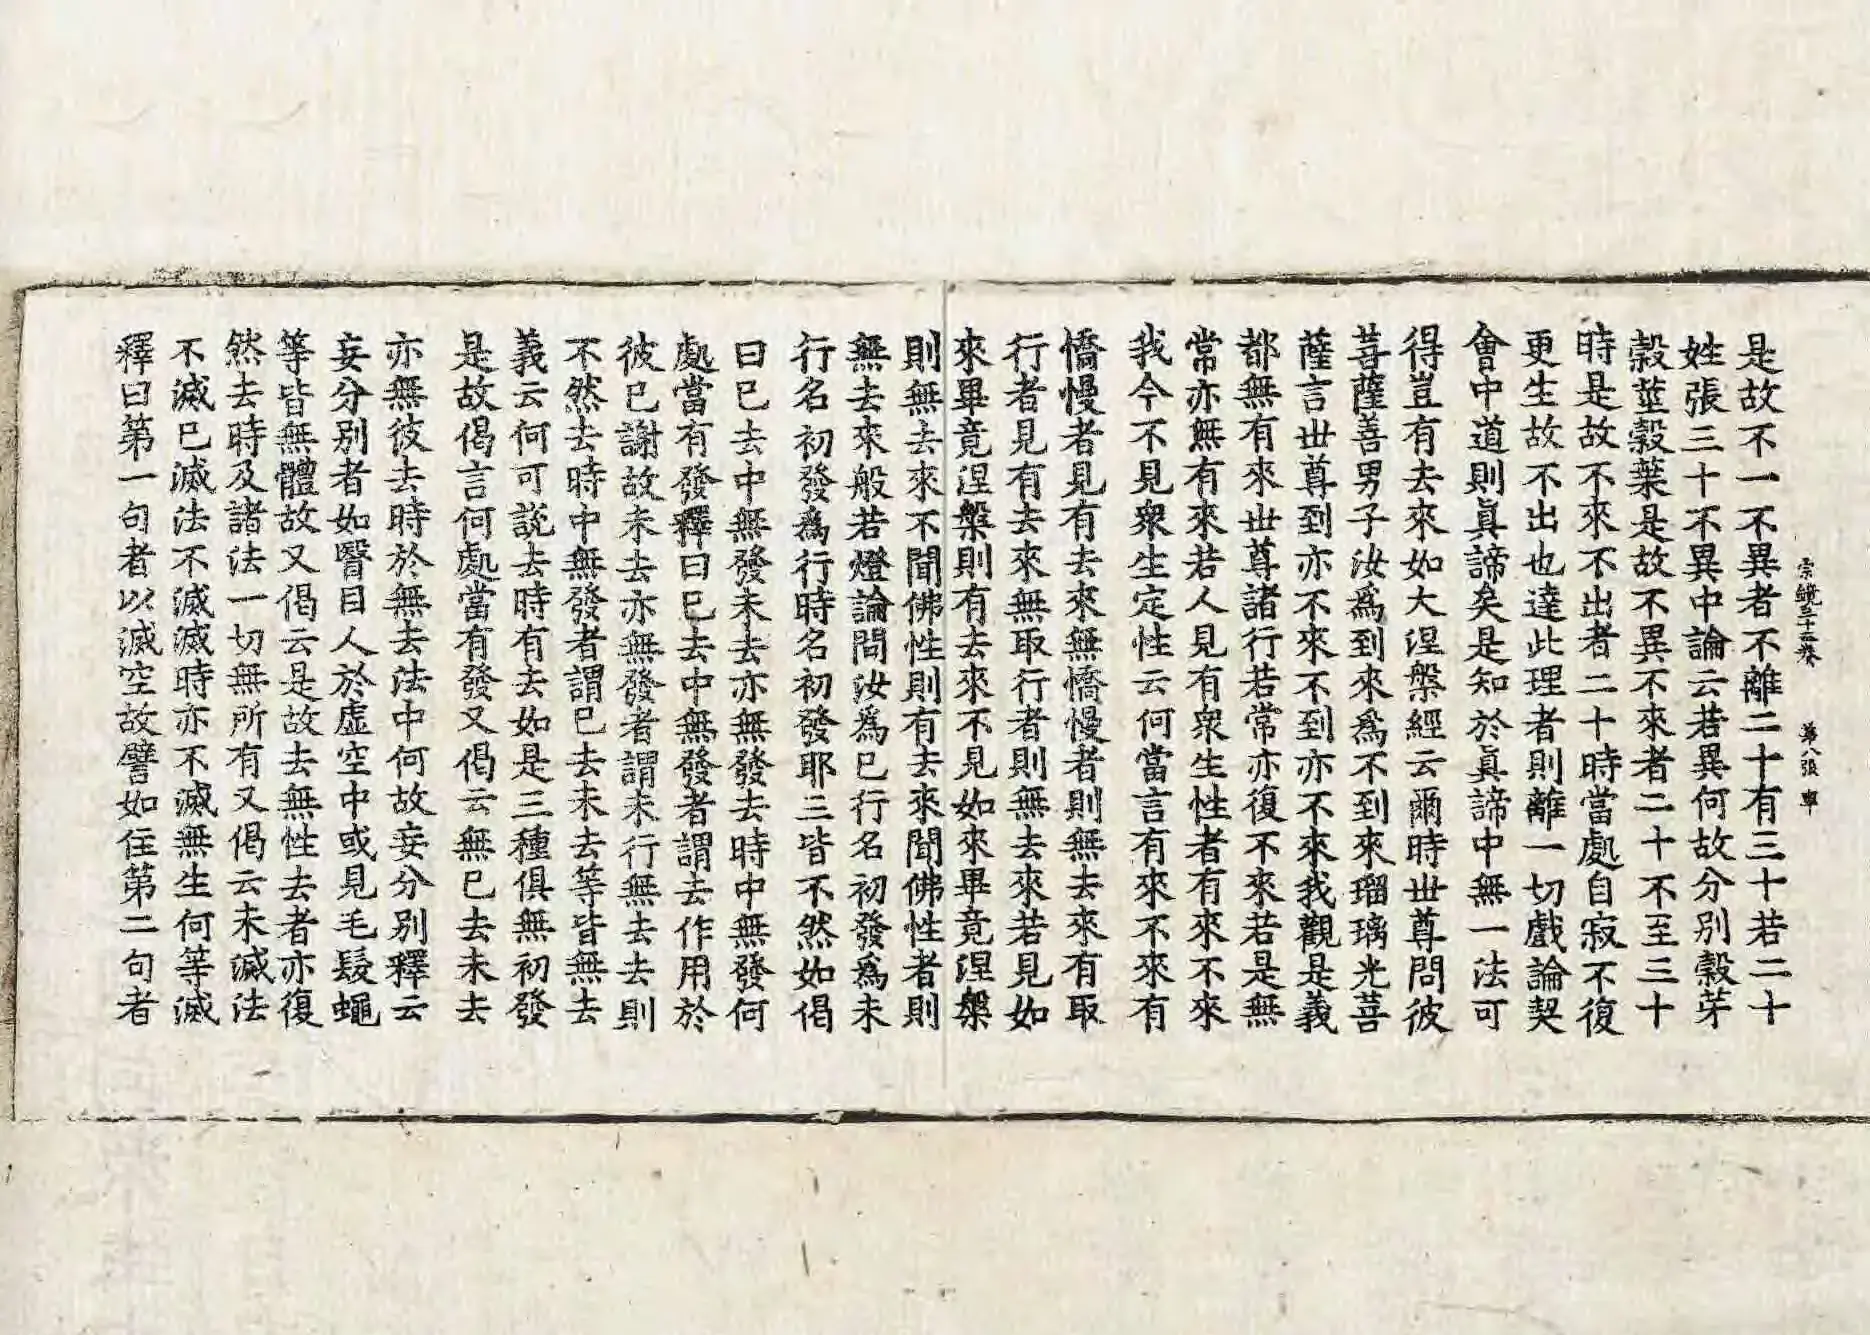 宗鏡三十三卷　第八張　寧
是故不一不異者不離二十有三十若二十
姓張三十不異中論云若異何故分別穀芽
穀莖穀葉是故不異不來者二十不至三十
時是故不來不出者二十時當處自寂不復
更生故不出也達此理者則離一切戲論契
會中道則真諦矣是知於真諦中無一法可
得豈有去來如大涅槃經云爾時世尊問彼
菩薩善男子汝爲到來爲不到來瑠璃光菩
薩言世尊到亦不來不到亦不來我觀是義
都無有來世尊諸行若常亦復不來若是無
常亦無有來若人見有衆生性者有來不來
我今不見衆生定性云何當言有來不來有
憍慢者見有去來無憍慢者則無去來有取
行者見有去來無取行者則無去來若見如
來畢竟涅槃則有去來不見如來畢竟涅槃
則無去來不聞佛性則有去來聞佛性者則
無去來般若燈論問汝爲已行名初發爲未
行名初發爲行時名初發耶三皆不然如偈
曰已去中無發未去亦無發去時中無發何
處當有發釋曰已去中無發者謂去作用於
彼已謝故未去亦無發者謂未行無去去則
不然去時中無發者謂已去未去等皆無去
義云何可說去時有去如是三種俱無初發
是故偈言何處當有發又偈云無已去未去
亦無彼去時於無去法中何故妄分別釋云
妄分別者如瞖目人於虛空中或見毛髮蠅
等皆無體故又偈云是故去無性去者亦復
然去時及諸法一切無所有又偈云未滅法
不滅已滅法不滅滅時亦不滅無生何等滅
釋曰第一句者以滅空故譬如住第二句者